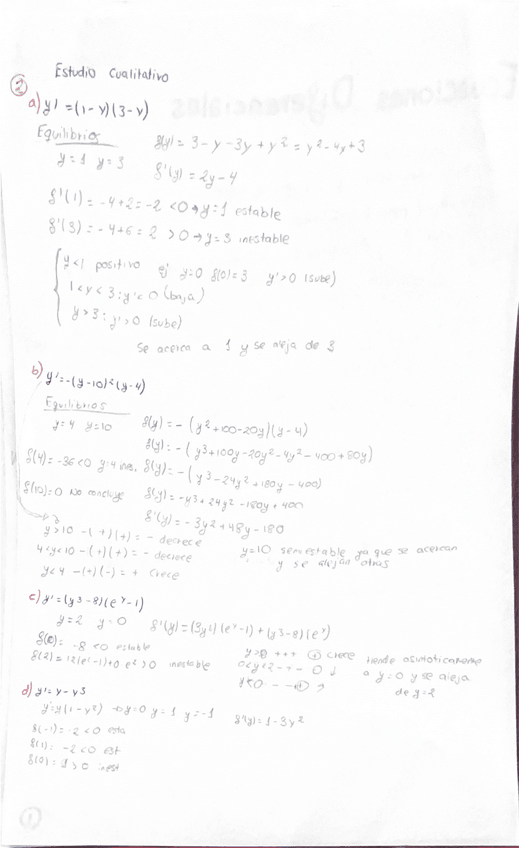 Estudio Cualitativo
②
a) y' = (1-y)(3-y)
Equilibrios
y=1 y=3
f(y) = 3-y-3y+y² = y²-4y+3
f'(y) = 2y-4
f'(1) = -4+2=-2 <0 → y=1 estable
f'(3) = -4+6=2 >0 → y=3 inestable
y<1 positivo ej y=0 f(0)=3 y'>0 (sube)
1<y<3 : y'<0 (baja)
y>3 : y'>0 (sube)
se acerca a 1 y se aleja de 3
b) y'=-(y-10)²(y-4)
Equilibrios
y=4 y=10
f(y) = -(y²+100-20y)(y-4)
f(y) = -(y³+100y-20y²-4y²-400+80y)
f(4)=-36<0 y=4
f(y) = -(y³-24y²+180y-400)
f(10)=0 No concluye
f(y) = -y³+24y²-180y+400
f'(y) = -3y²+48y-180
y>10 -(+)(+) = - decrece
4<y<10 -(+)(+) = - decrece
y<4 -(+)(-) = + crece
y=10 semiestable ya que se acercan
y se alejan otras
c) y'=(y³-8)(eʸ-1)
y=2 y=0 f'(y)=(3y²)(eʸ-1)+(y³-8)(eʸ)
f(0)= -8<0 estable
f(2)=12(e²-1)+0 e²>0 inestable
crece
0<y<2
y<0
tiende asintoticamente
a y=0 y se aleja
de y=2
d) y'=y-y³
y'=y(1-y²) → y=0 y=1 y=-1 f'(y)=1-3y²
f(-1)=-2<0 esta
f(1)= -2<0 est
f(0)= 1>0 inest
1